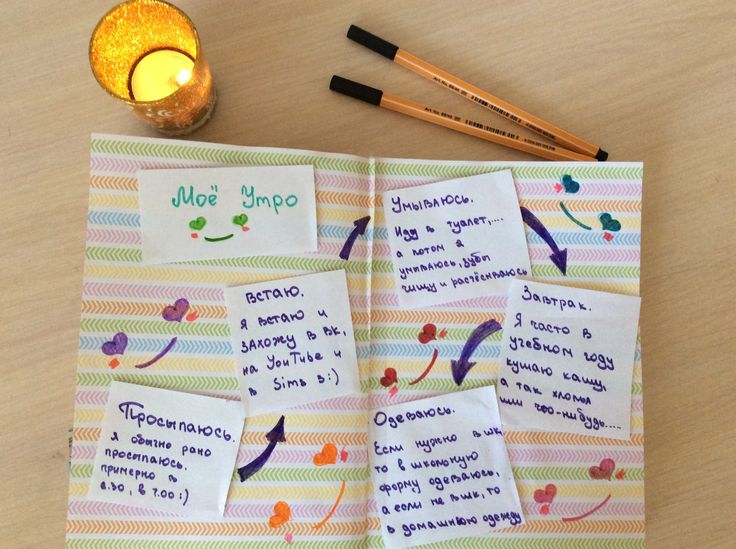 Моё Утро
Просыпаюсь.
Я обычно рано
просыпаюсь.
примерно в
6.30, в 7.00 :)
встаю.
я встаю и
захожу в вк,
на YouTube и
в Sims 3 :)
Умываюсь.
Иду в туалет,....
а потом я
умываюсь, зубы
чищу и растёсываюсь
Завтрак.
Я часто в
учебном году
кушаю кашу
а так хлопья
или что-нибудь....
Одеваюсь.
Если нужно в шк,
то в школьную
форму одеваюсь,
а если не в шк, то
в домашнюю одежду